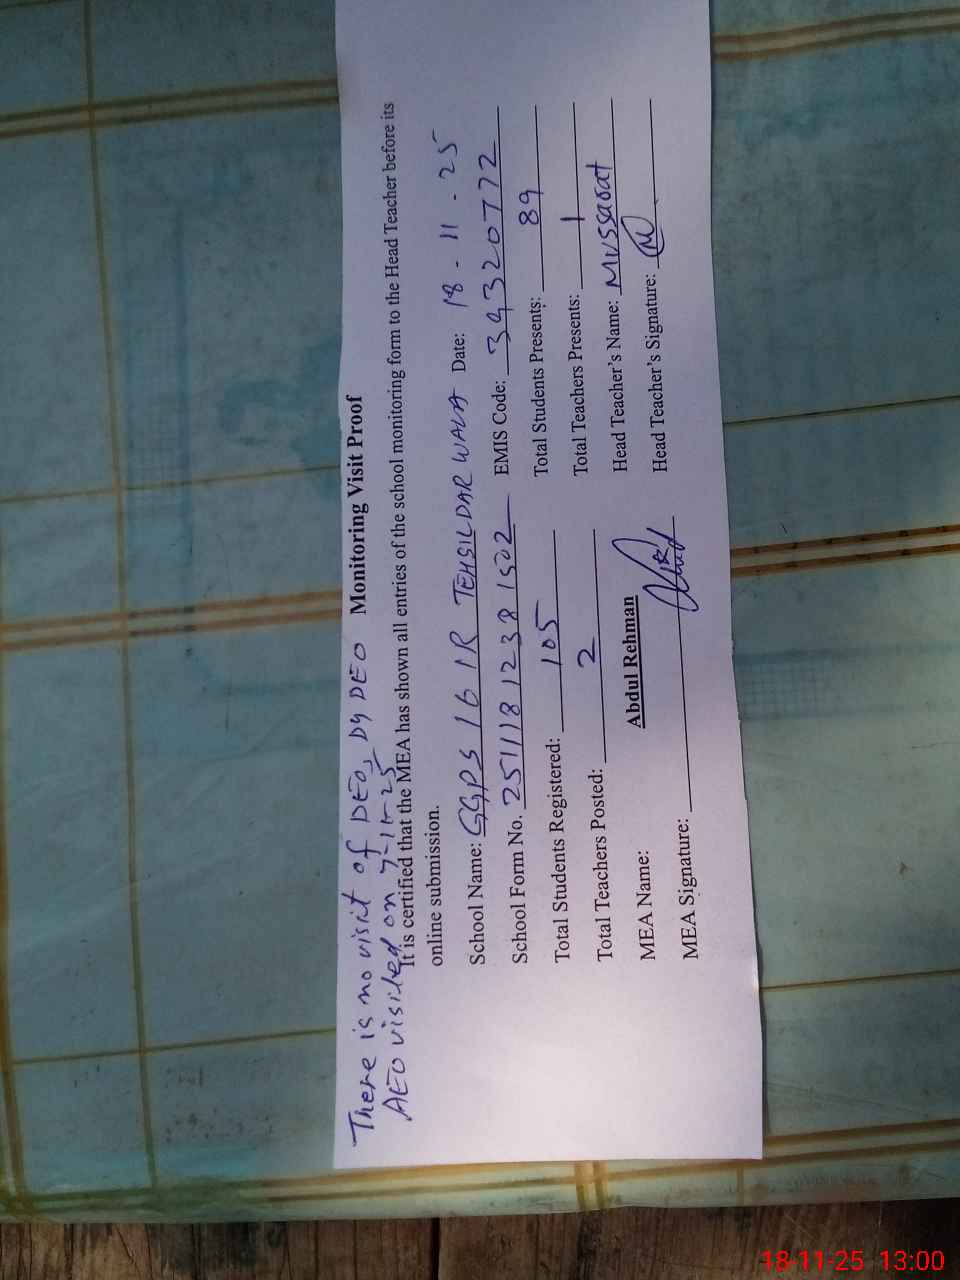 There is no visit of DEO, DY DEO
AEO visited on 7-11-25
Monitoring Visit Proof
It is certified that the MEA has shown all entries of the school monitoring form to the Head Teacher before its
online submission.
School Name: GGPS 16 1R TEHSILDAR WALA Date: 18 - 11 - 25
School Form No. 2511181238 1502 EMIS Code: 39320772
Total Students Registered: 105 Total Students Presents: 89
Total Teachers Posted: 2 Total Teachers Presents: 1
MEA Name: Abdul Rehman Head Teacher's Name: Mussarat
MEA Signature: Head Teacher's Signature:
18-11-25 13:00